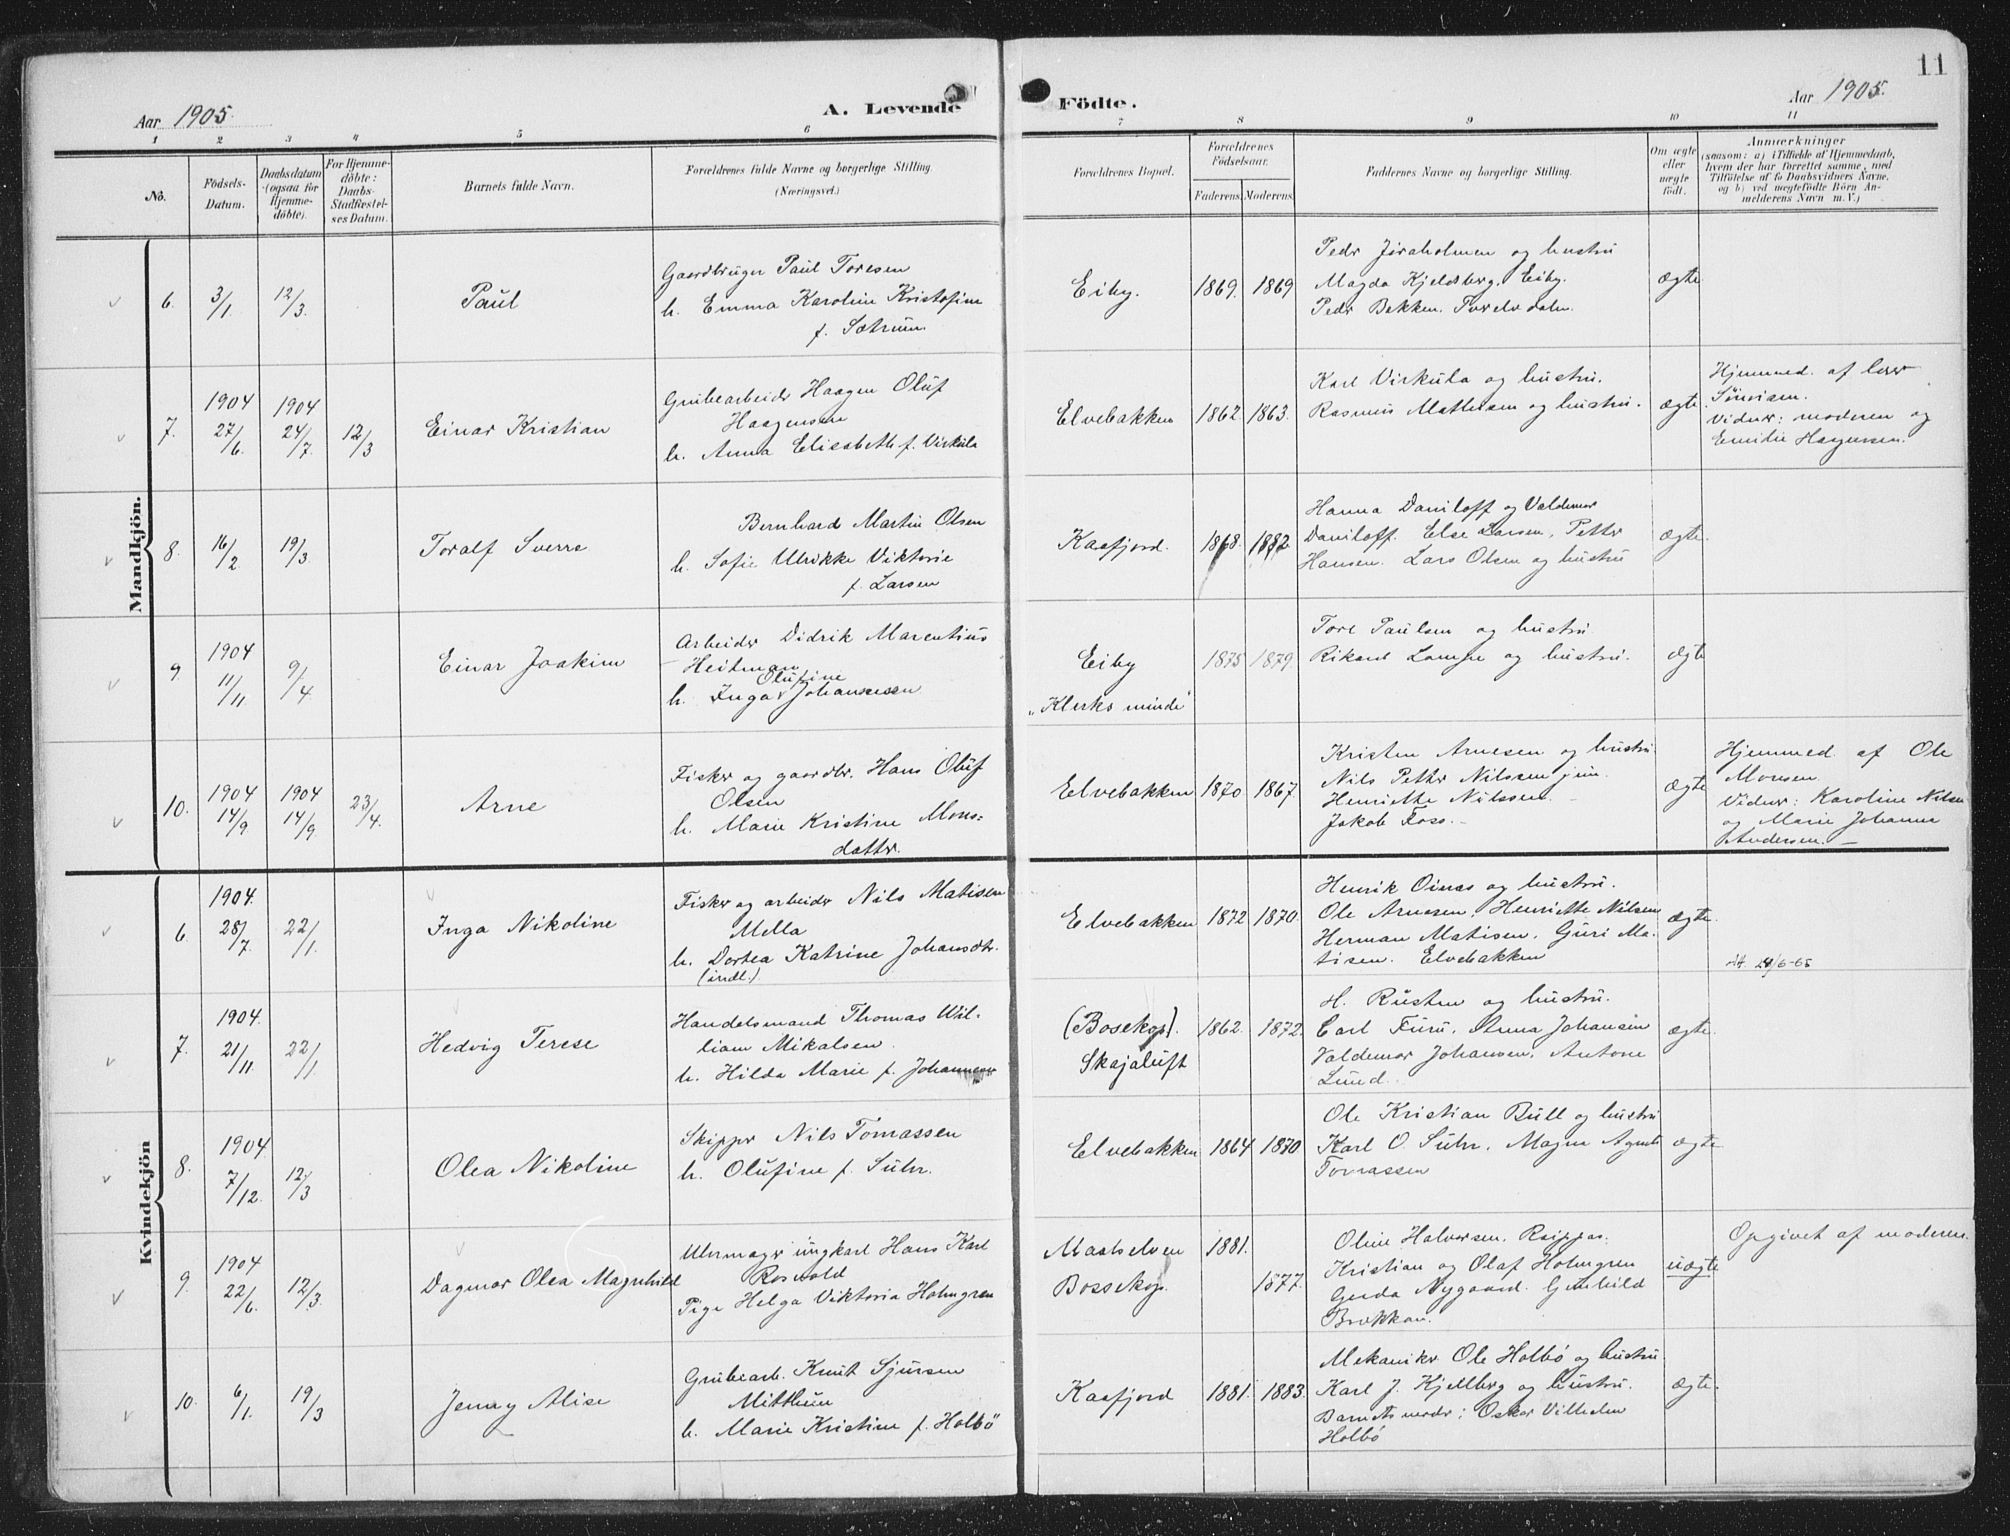 11
Aar 1905.
A. Levende Födte.
Aar 1905.
1 2 3 4 5 6 7 8 9 10 11
No.
Födsels-
Datum.
Daabsdatum
(ogsaa for
Hjemme-
döbte).
For Hjemme-
döbte:
Daabs-
Stadfæstel-
ses Datum.
Barnets fulde Navn.
Forældrenes fulde Navne og borgerlige Stilling.
(Næringsvei.)
Forældrenes Bopæl.
Forældrenes
Födselsaar.
Faderens. Moderens.
Faddernes Navne og borgerlige Stilling.
Om ægte
eller
uægte
født.
Anmærkninger
(saasom: a) i Tilfælde af Hjemmedaab,
hvem der har forrettet samme, med
Tilföielse af to Daabsvidners Navne,
og b) ved uægtefödte Börn An-
melderens Navn m. V.)
Mandkjön.
6. 3/1 12/3.
Paul
Gaardbruger Paul Toresen
h. Emma Karoline Kristofine
f. Sætrum.
Eiby.
1869. 1869
Peder Jøraholmen og hustru
Magda Kjeldsberg, Eiby.
Peder Bakken.
ægte
7. 1904 27/6. 1904 24/7. 12/3
Einar Kristian
Grubearbeider Haagen Oluf
Haagensen
h. Anna Elisabeth f. Virkula
Elvebakken
1862 1863.
Karl Virkula og hustru.
Rasmus Mathisen og hustru.
ægte
Hjemmed. af lærer
Vidner: moderen og
Emilie Hagensen.
8. 16/2 19/3.
Toralf Sverre
Bernhard Martin Olsen
h. Sofie Ulrikke Viktoria
f. Larsen
Kaafjord.
1868. 1882
Hanna Daniloff og Valdemar
Daniloff. Else Larsen, Petter
Hansen. Lars Olsen og hustru
ægte.
9. 1904 11/11 9/4
Einar Joakim
Arbeider Didrik Marentius
Heitman
Olufine
h. Inga Johannesen
Eiby
„Klerks minde"
1875 1879.
Tore Paulsen og hustru
Rikard Lampe og hustru.
ægte
10. 1904 14/9 1904 14/9 23/4.
Arne
Fisker og gaardbr. Hans Oluf
Olsen
h. Marie Kristine Mons=
datter.
Elvebakken
1870 1867
Kristen Arnesen og hustru
Nils Petter Nilssen jun.
Henriette Nilssen.
Jakob Foss.
ægte
Hjemmed. af Ole
Monsen
Vidner: Karoline Nilsen
og Marie Johanna
Andersen.
Kvindekjön
6 1904. 28/7. 22/1.
Inga Nikoline
Fisker og arbeider Nils Matisen
Mella
h. Dortea Katrine Johansdtr.
(indl.)
Elvebakken
1872 1870.
Henrik Oinas og hustru.
Ole Arnesen, Henriette Nilsen
Herman Matisen, Guri Ma-
tisen. Elvebakken
ægte.
7. 1904. 21/11. 22/1
Hedvig Terese
Handelsmand Thomas Wil-
liam Mikalsen.
h. Hilda Marie f. Johannesen
(Bosekop).
Skajaluft
1862. 1872.
H. Rusten og hustru.
Carl Furu, Anna Johansen
Valdemar Johansen, Antone
Lund.
ægte.
8. 1904. 7/12. 12/3
Olea Nikoline
Skipper Nils Tomassen
h. Olufine f. Suhr.
Elvebakken
1864 1870
Ole Kristian Bull og hustru
Karl O. Suhr, Magna Agnete
Tomassen
ægte
9. 1904 22/6. 12/3.
Dagmar Olea Magnhild
Uhrmager ungkarl Hans Karl
Rosvold
Pige Helga Viktoria Holmgren
Maalselven
Bossekop.
1881. 1877.
Oline Halvorsen, Raippas.
Kristian og Olaf Holmgren
Gerda Nygaard. Gunhild
Brækkan.
uægte
Opgivet af moderen.
10. 6/1. 19/3
Jenny Alise
Grubearb. Knut Sjursen
Mitthun
h. Marie Kristine f. Holbö
Kaafjord
1881. 1883.
Mekaniker Ole Holbö og hustru.
Karl J. Kjellberg og hustru.
Oskar Vilhelm
Holbö
ægte.